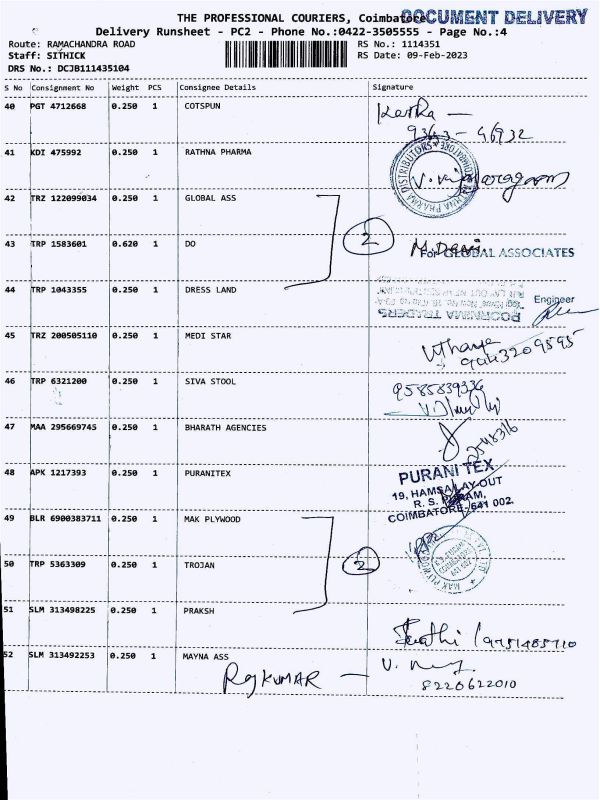 THE PROFESSIONAL COURIERS, Coimbatore
DOCUMENT DELIVERY
Delivery Runsheet - PC2 - Phone No.:0422-3505555 - Page No.:4
Route: RAMACHANDRA ROAD
RS No.: 1114351
Staff: SITHICK
RS Date: 09-Feb-2023
DRS No.: DCJB111435104
S No Consignment No Weight PCS Consignee Details Signature
40 PGT 4712668 0.250 1 COTSPUN
41 KDI 475992 0.250 1 RATHNA PHARMA
42 TRZ 122099034 0.250 1 GLOBAL ASS
2
43 TRP 1583601 0.620 1 DO
For GLOBAL ASSOCIATES
44 TRP 1043355 0.250 1 DRESS LAND
Engineer
POORNIMA TRADERS
45 TRZ 200505110 0.250 1 MEDI STAR
46 TRP 6321200 0.250 1 SIVA STOOL
9585839336
47 MAA 295669745 0.250 1 BHARATH AGENCIES
48 APK 1217393 0.250 1 PURANITEX
PURANI TEX
19, HAMSA LAY-OUT
R. S. PURAM,
COIMBATORE-641 002.
49 BLR 6900383711 0.250 1 MAK PLYWOOD
50 TRP 5363309 0.250 1 TROJAN
2
51 SLM 313498225 0.250 1 PRAKSH
9751485710
52 SLM 313492253 0.250 1 MAYNA ASS
RajKUMAR
8220622010